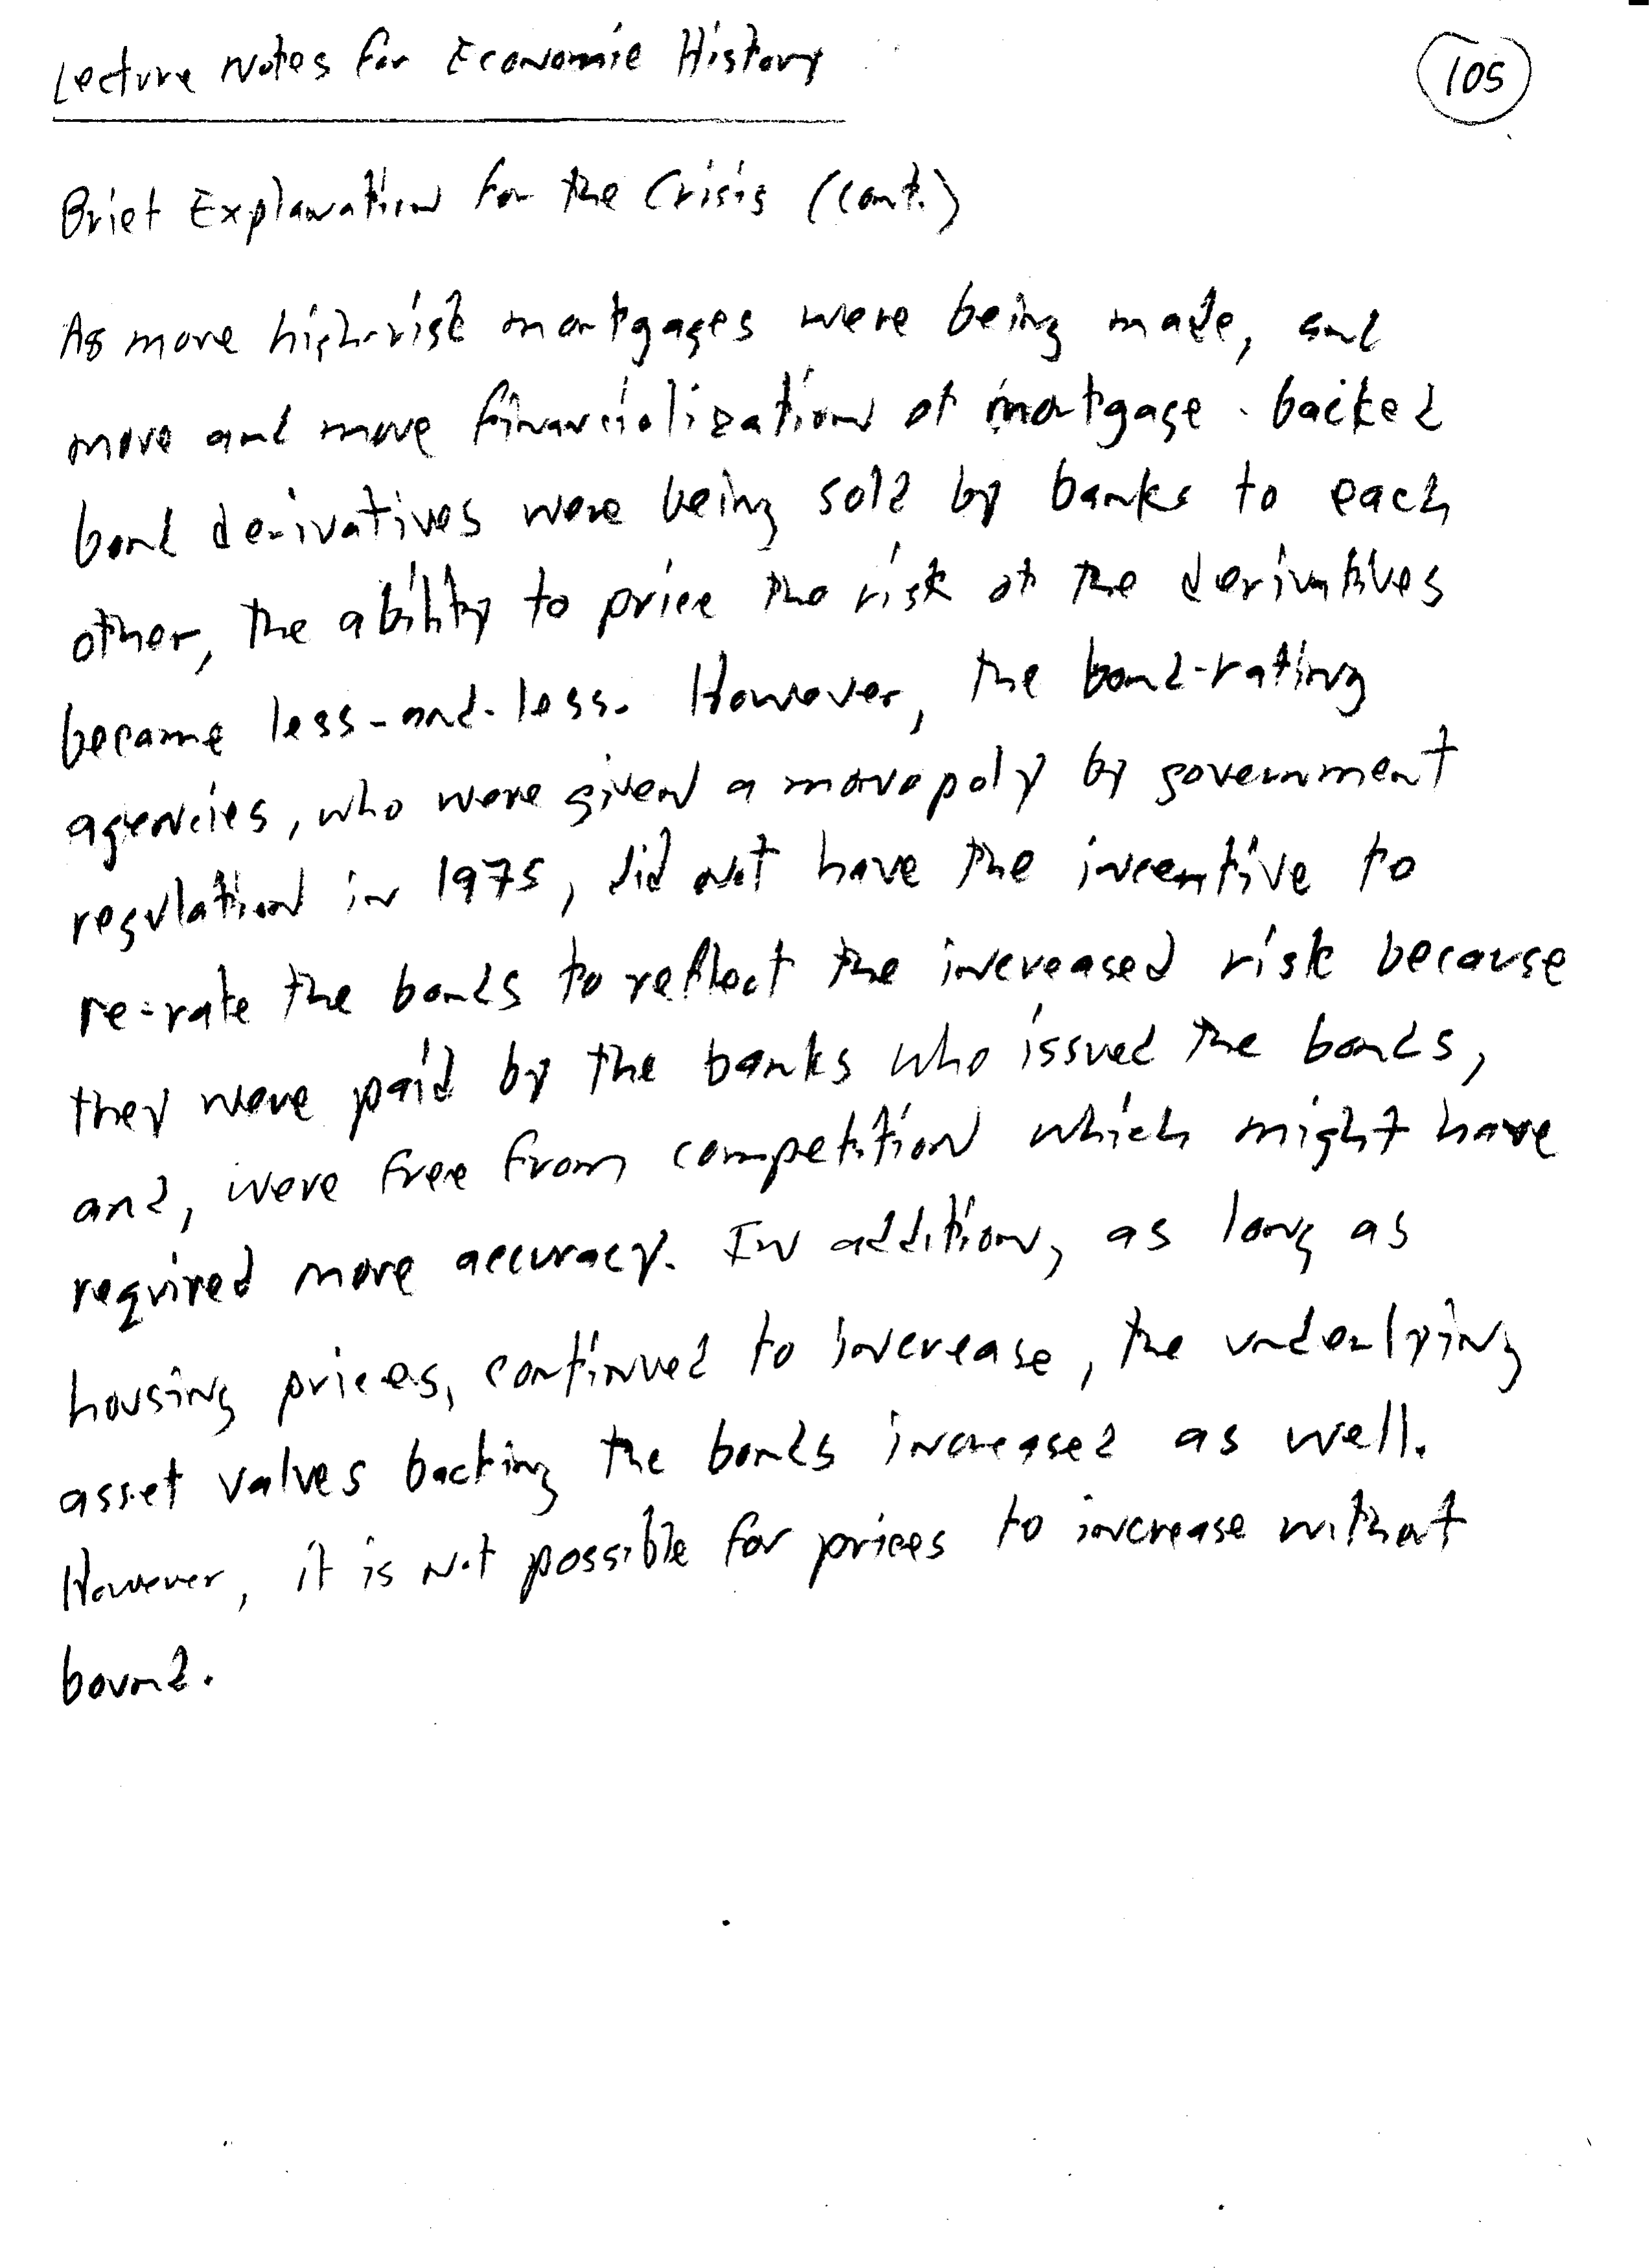 Lecture Notes for Economic History
105
Brief Explanation for the Crisis (cont.)
As more high-risk mortgages were being made, and
more and more financialization of mortgage-backed
bond derivatives were being sold by banks to each
other, the ability to price the risk of the derivatives
became less-and-less. However, the bond-rating
agencies, who were given a monopoly by government
regulation in 1975, did not have the incentive to
re-rate the bonds to reflect the increased risk because
they were paid by the banks who issued the bonds,
and, were free from competition which might have
required more accuracy. In addition, as long as
housing prices, continued to increase, the underlying
asset values backing the bonds increased as well.
However, it is not possible for prices to increase without
bound.